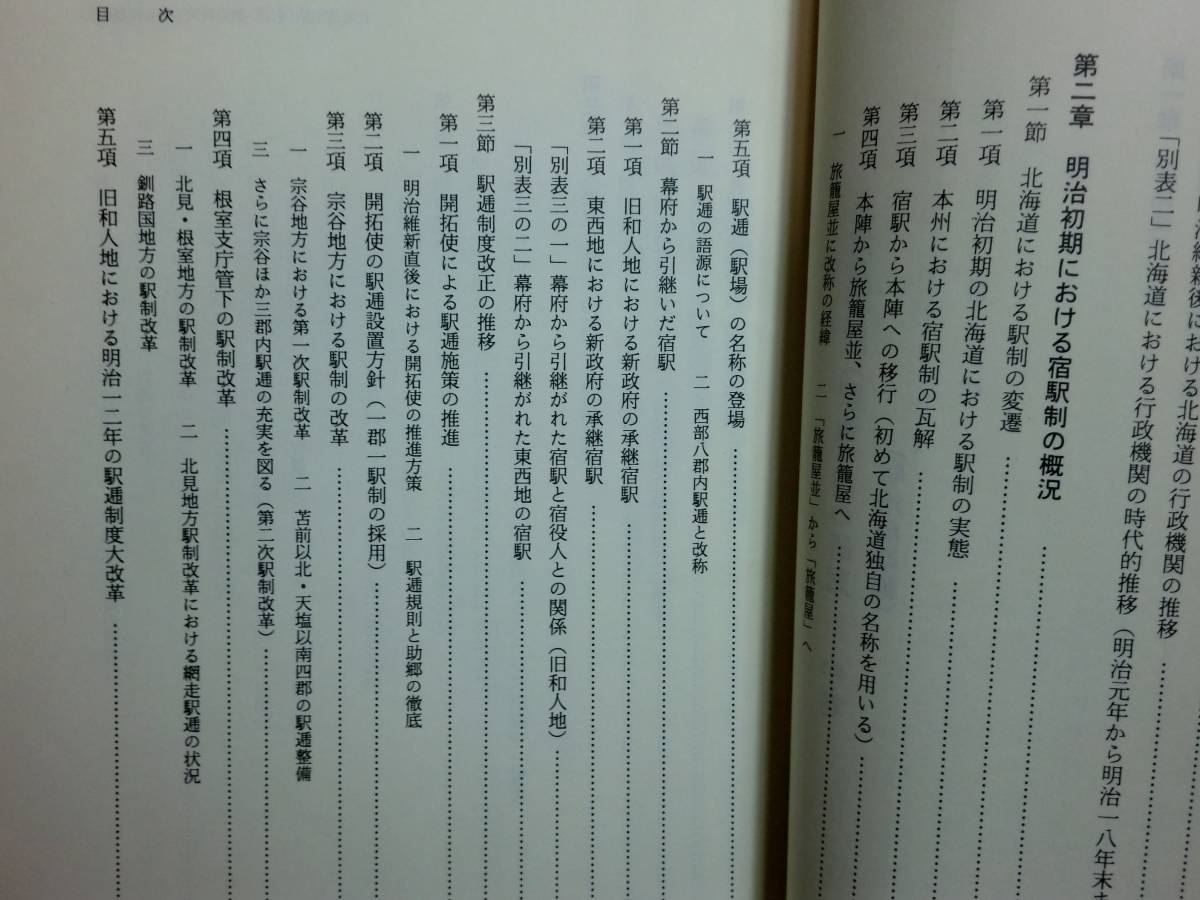 における北海道の行政機関の推移
「別表二」北海道における行政機関の時代的推移（明治元年から明治一八年末
第二章　明治初期における宿駅制の概況
第一節　北海道における駅制の変遷
第一項　明治初期の北海道における駅制の実態
第二項　本州における宿駅制の瓦解
第三項　宿駅から本陣への移行（初めて北海道独自の名称を用いる）
第四項　本陣から旅籠屋並、さらに旅籠屋へ
一　旅籠屋並に改称の経緯　二　「旅籠屋並」から「旅籠屋」へ
目次
第五項　駅逓（駅場）の名称の登場
一　駅逓の語源について　二　西部八郡内駅逓と改称
第二節　幕府から引継いだ宿駅
第一項　旧和人地における新政府の承継宿駅
第二項　東西地における新政府の承継宿駅
「別表三の一」幕府から引継がれた宿駅と宿役人との関係（旧和人地）
「別表三の二」幕府から引継がれた東西地の宿駅
第三節　駅逓制度改正の推移
第一項　開拓使による駅逓施策の推進
一　明治維新直後における開拓使の推進方策　二　駅逓規則と助郷の徹底
第二項　開拓使の駅逓設置方針（一郡一駅制の採用）
第三項　宗谷地方における駅制の改革
一　宗谷地方における第一次駅制改革　二　苫前以北・天塩以南四郡の駅逓整備
三　さらに宗谷ほか三郡内駅逓の充実を図る（第二次駅制改革）
第四項　根室支庁管下の駅制改革
一　北見・根室地方の駅制改革　二　北見地方駅制改革における網走駅逓の状況
三　釧路国地方の駅制改革
第五項　旧和人地における明治一二年の駅逓制度大改革